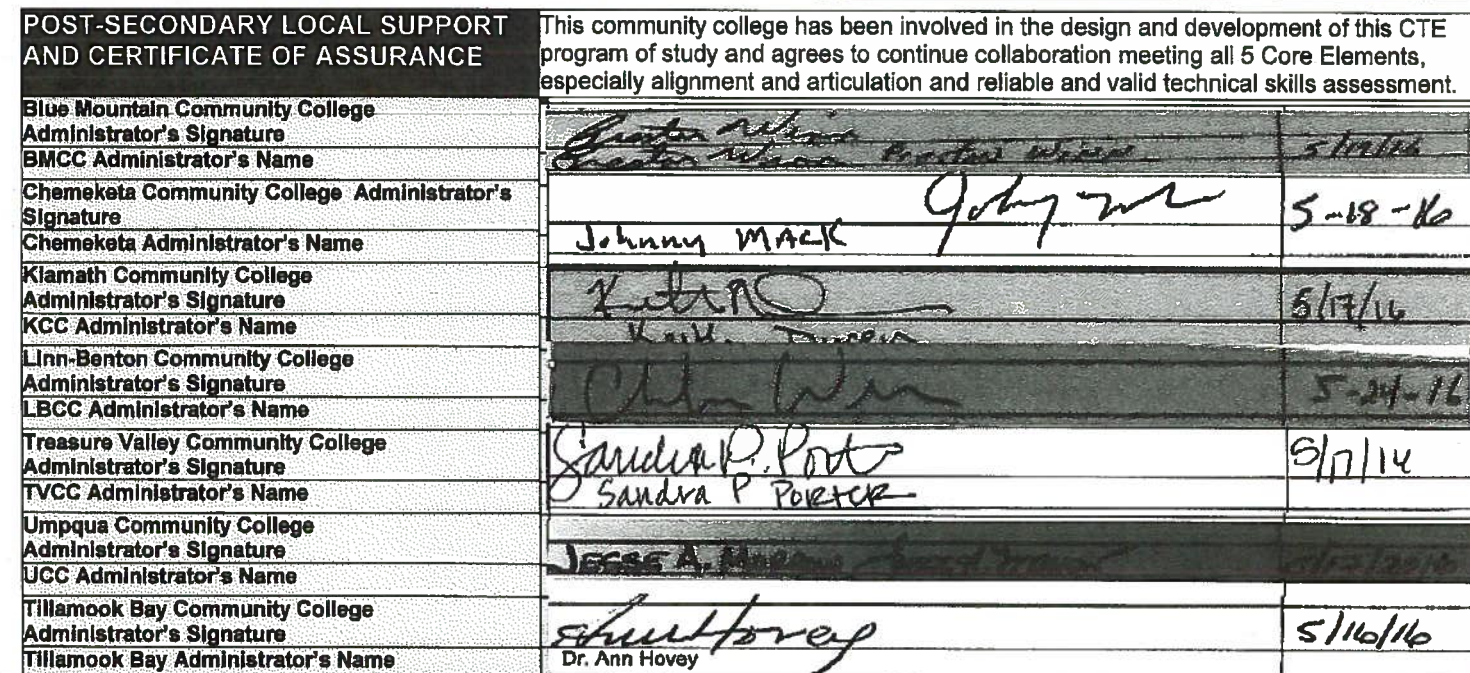 POST-SECONDARY LOCAL SUPPORT
AND CERTIFICATE OF ASSURANCE
This community college has been involved in the design and development of this CTE
program of study and agrees to continue collaboration meeting all 5 Core Elements,
especially alignment and articulation and reliable and valid technical skills assessment.
Blue Mountain Community College
Administrator's Signature
BMCC Administrator's Name
Chemeketa Community College Administrator's
Signature
5-18-16
Chemeketa Administrator's Name
Johnny MACK
Klamath Community College
Administrator's Signature
5/17/16
KCC Administrator's Name
Linn-Benton Community College
Administrator's Signature
5-24-16
LBCC Administrator's Name
Treasure Valley Community College
Administrator's Signature
Sandra P. Porter
5/17/16
TVCC Administrator's Name
Sandra P PORTER
Umpqua Community College
Administrator's Signature
JESSE A.
UCC Administrator's Name
Tillamook Bay Community College
Administrator's Signature
Hovey
5/16/16
Tillamook Bay Administrator's Name
Dr. Ann Hovey